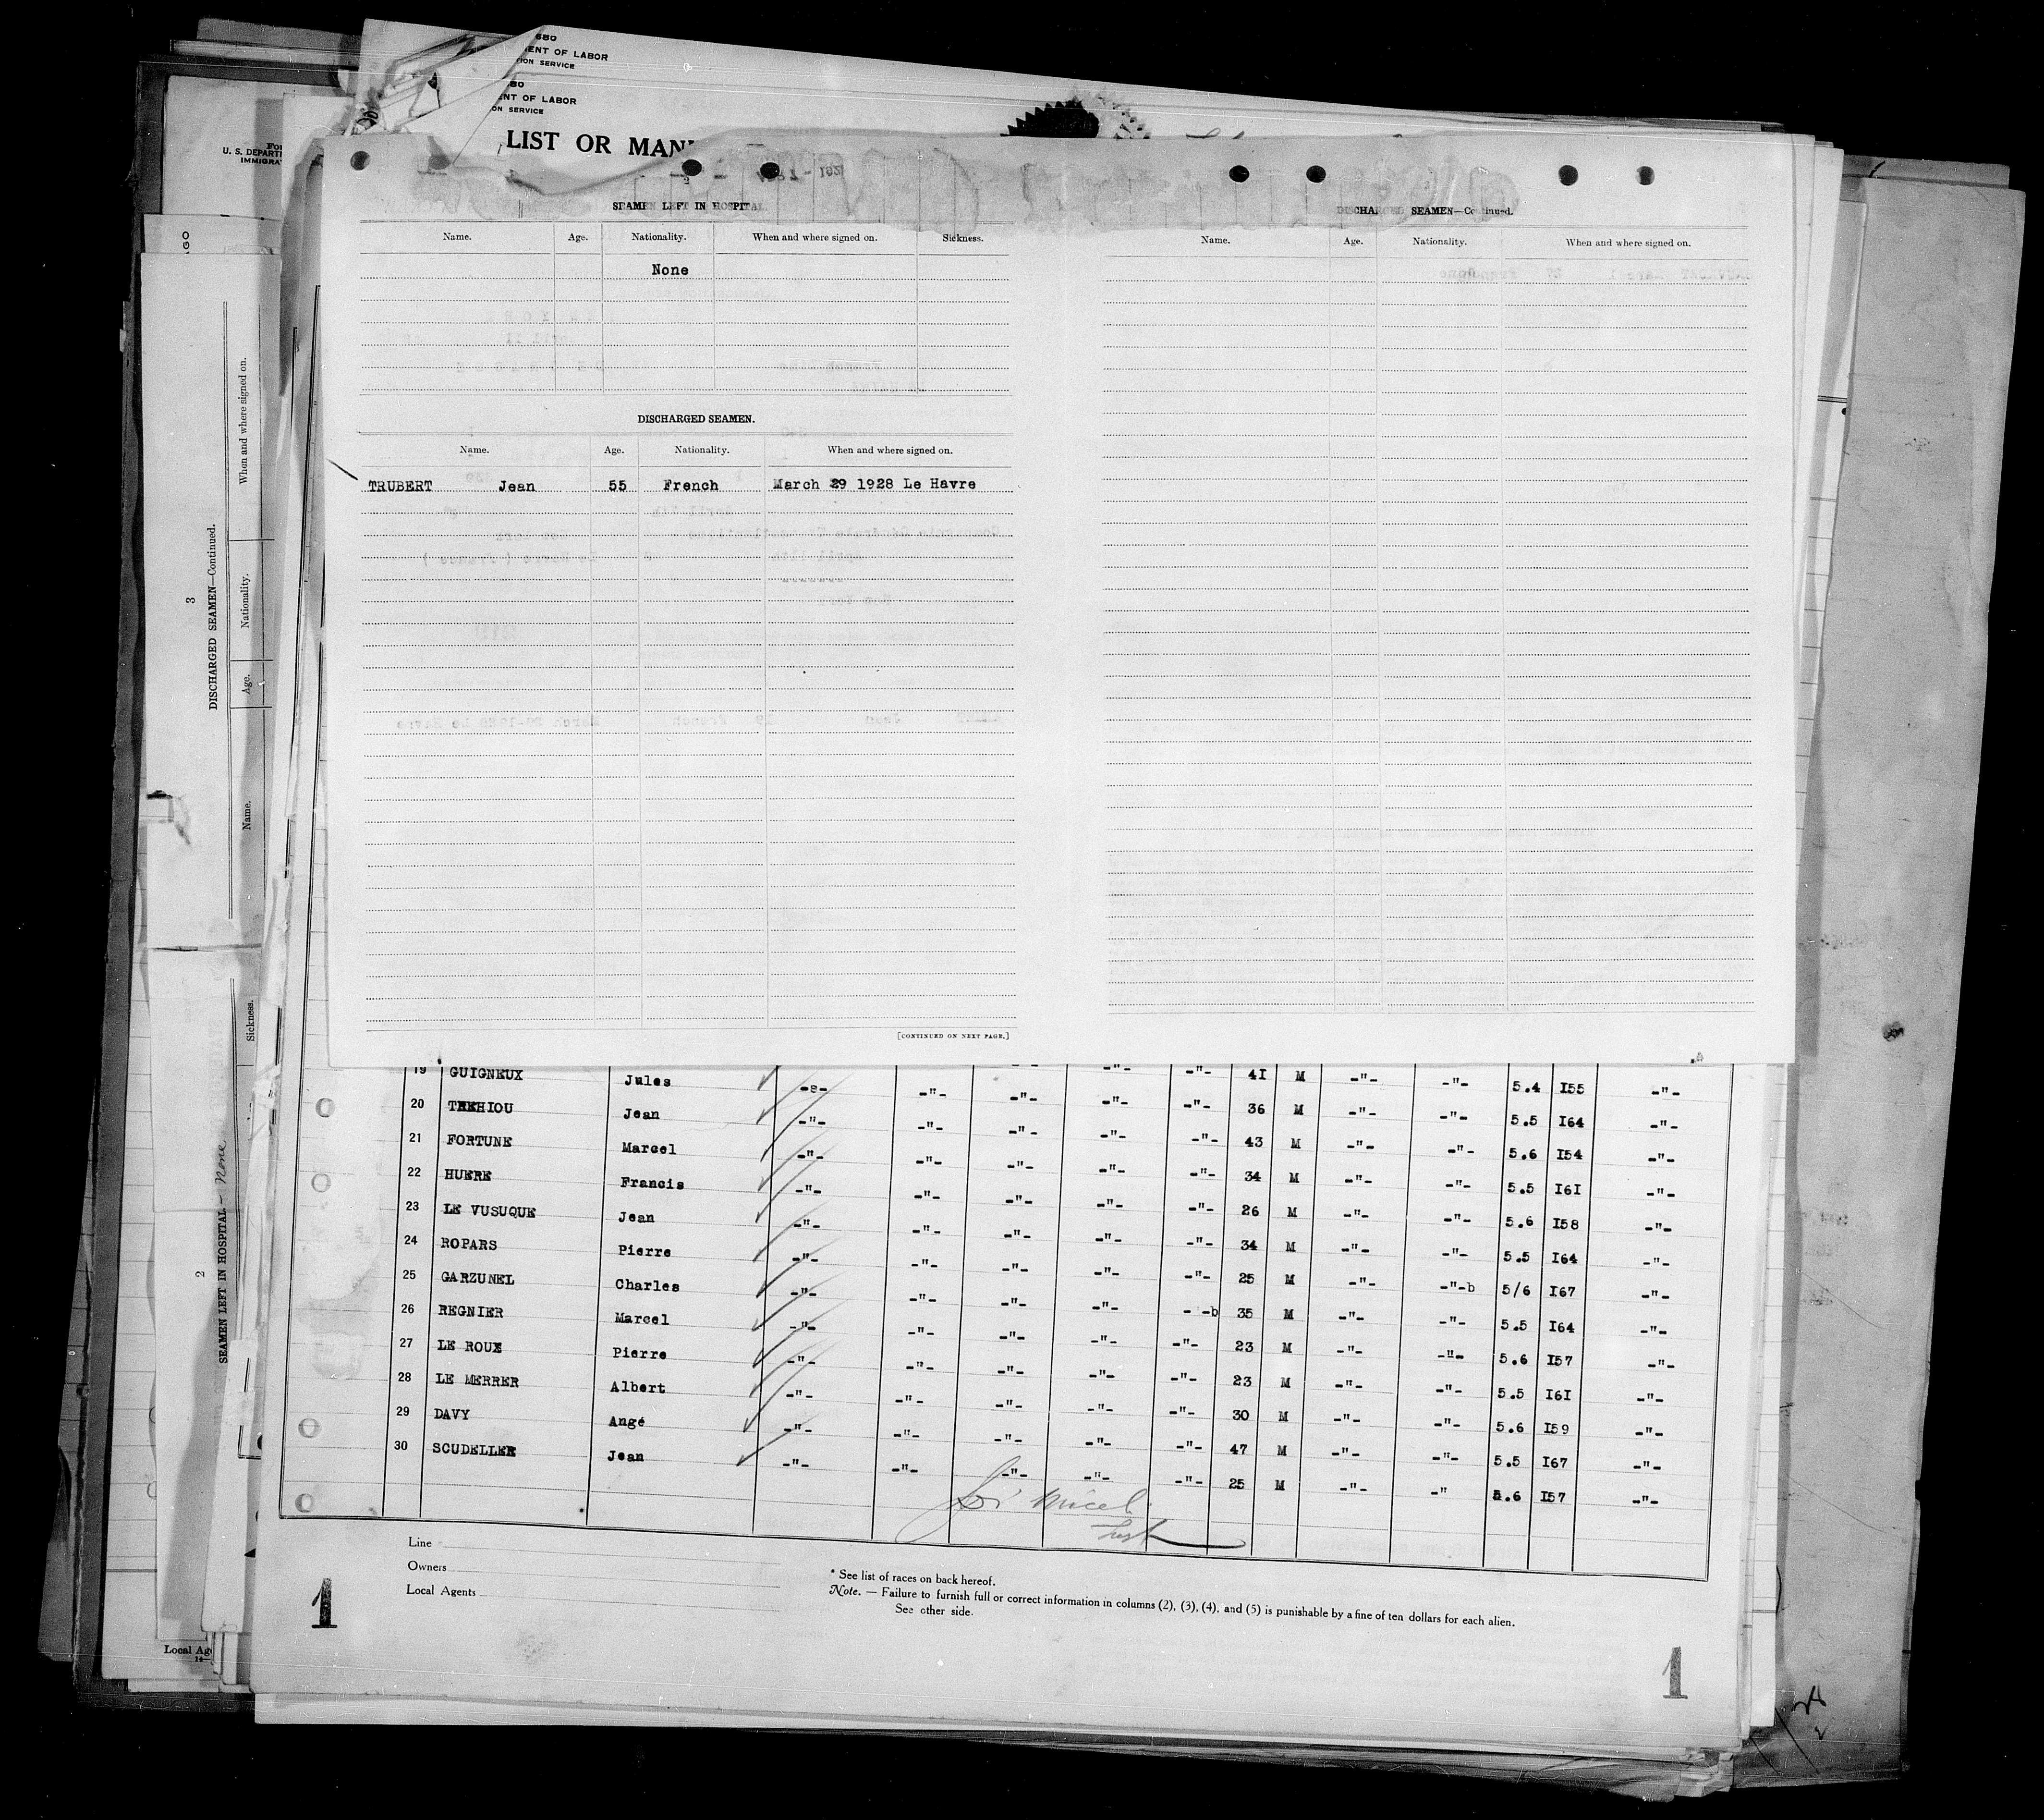 LIST OR
SEAMEN LEFT IN HOSPITAL
Name. Age. Nationality. When and where signed on. Sickness.
None
DISCHARGED SEAMEN.
Name. Age. Nationality. When and where signed on.
TRUBERT Jean 55 French March 29 1928 Le Havre
[CONTINUED ON NEXT PAGE.]
DISCHARGED SEAMEN—Continued.
Name. Age. Nationality. When and where signed on.
19 GUIGNEUX Jules -s- -"- -"- -"- -"- 41 M -"- -"- 5.4 I55 -"-
20 Jean -"- -"- -"- -"- -"- 36 M -"- -"- 5.5 I64 -"-
21 FORTUNE Marcel -"- -"- -"- -"- -"- 43 M -"- -"- 5.6 I54 -"-
22 HUERE Francis -"- -"- -"- -"- -"- 34 M -"- -"- 5.5 I6I -"-
23 LE VUSUQUE Jean -"- -"- -"- -"- -"- 26 M -"- -"- 5.6 I58 -"-
24 ROPARS Pierre -"- -"- -"- -"- -"- 34 M -"- -"- 5.5 I64 -"-
25 GARZUNEL Charles -"- -"- -"- -"- -"- 25 M -"- -"-b 5/6 I67 -"-
26 REGNIER Marcel -"- -"- -"- -"- - -b 35 M -"- -"- 5.5 I64 -"-
27 LE ROUX Pierre -"- -"- -"- -"- -"- 23 M -"- -"- 5.6 I57 -"-
28 LE MERRER Albert -"- -"- -"- -"- -"- 23 M -"- -"- 5.5 I6I -"-
29 DAVY Angé -"- -"- -"- -"- -"- 30 M -"- -"- 5.6 I59 -"-
30 SCUDELLER Jean -"- -"- -"- -"- -"- 47 M -"- -"- 5.5 I67 -"-
25 M -"- -" 5.6 I57 -"-
Line
Owners
Local Agents
* See list of races on back hereof.
Note. — Failure to furnish full or correct information in columns (2), (3), (4), and (5) is punishable by a fine of ten dollars for each alien.
See other side.
1
1
3
DISCHARGED SEAMEN—Continued.
Name. Age. Nationality. When and where signed on.
2
SEAMEN LEFT IN HOSPITAL - None
Sickness.